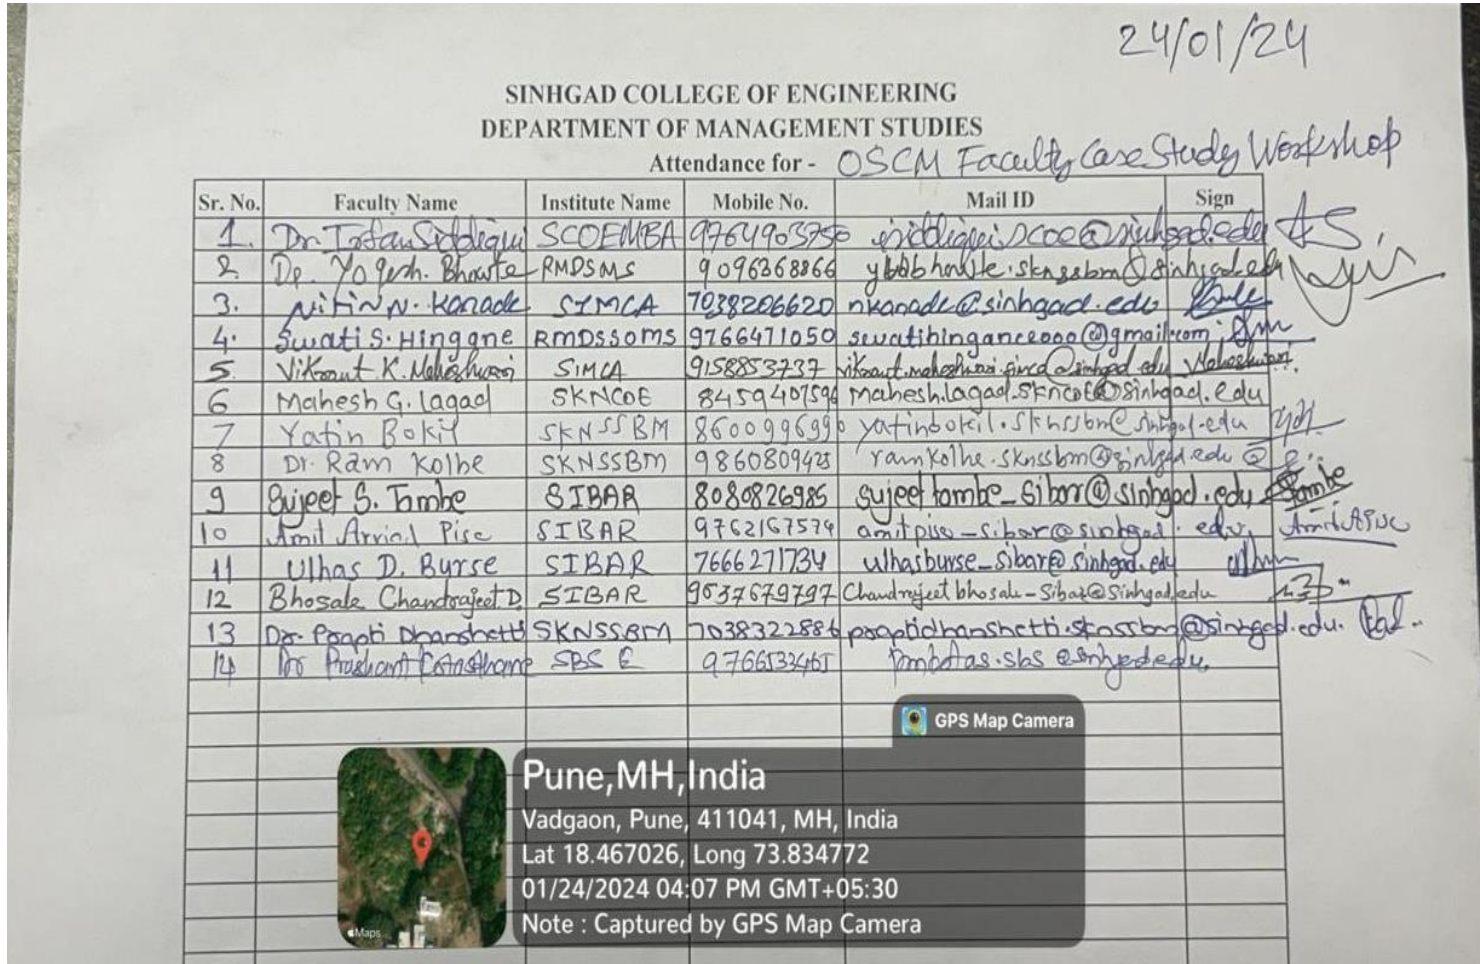 24/01/24
SINHGAD COLLEGE OF ENGINEERING
DEPARTMENT OF MANAGEMENT STUDIES
Attendance for - OSCM Faculty Case Study Workshop
Sr. No. Faculty Name Institute Name Mobile No. Mail ID Sign
1. Dr. Irfan Siddiqui SCOEMBA 9764903756 @sinhgad.edu
2. Dr. Yogesh. Bhowte RMDSMS 9096368866 @sinhgad.edu
3. Nitin N. Kanade SIMCA 7038206620 nkanade@sinhgad.edu
4. Swati S. Hingane RMDSSOMS 9766471050 swatihingane000@gmail.com
5. Vikraut K. Maheshwari SIMCA 9158853737 Maheshwari
6 Mahesh G. Lagad SKNCOE 8459407596 mahesh.lagad.skncoe@sinhgad.edu
7 Yatin Bokil SKNSSBM 8600996990 yatinbokil.sknssbm@sinhgad.edu
8 Dr. Ram Kolhe SKNSSBM 9860809423 ramkolhe.sknssbm@sinhgad.edu
9 Sujeet S. Tambe SIBAR 8080826985 sujeettambe_sibar@sinhgad.edu Tambe
10 Amit Arvind Pise SIBAR 9762167574 amitpise_sibar@sinhgad.edu Amit A Pise
11 Ulhas D. Burse SIBAR 7666271734 ulhasburse_sibar@sinhgad.edu
12 Bhosale Chandrajeet D. SIBAR 9637679797 Chandrajeetbhosale_Sibar@Sinhgad.edu
13 Dr. Prapti Dhanshetti SKNSSBM 7038322886 praptidhanshetti.sknssbm@sinhgad.edu.
14 Dr Prashant SBS E 9766533465
GPS Map Camera
Pune,MH,India
Vadgaon, Pune, 411041, MH, India
Lat 18.467026, Long 73.834772
01/24/2024 04:07 PM GMT+05:30
Note : Captured by GPS Map Camera
Maps